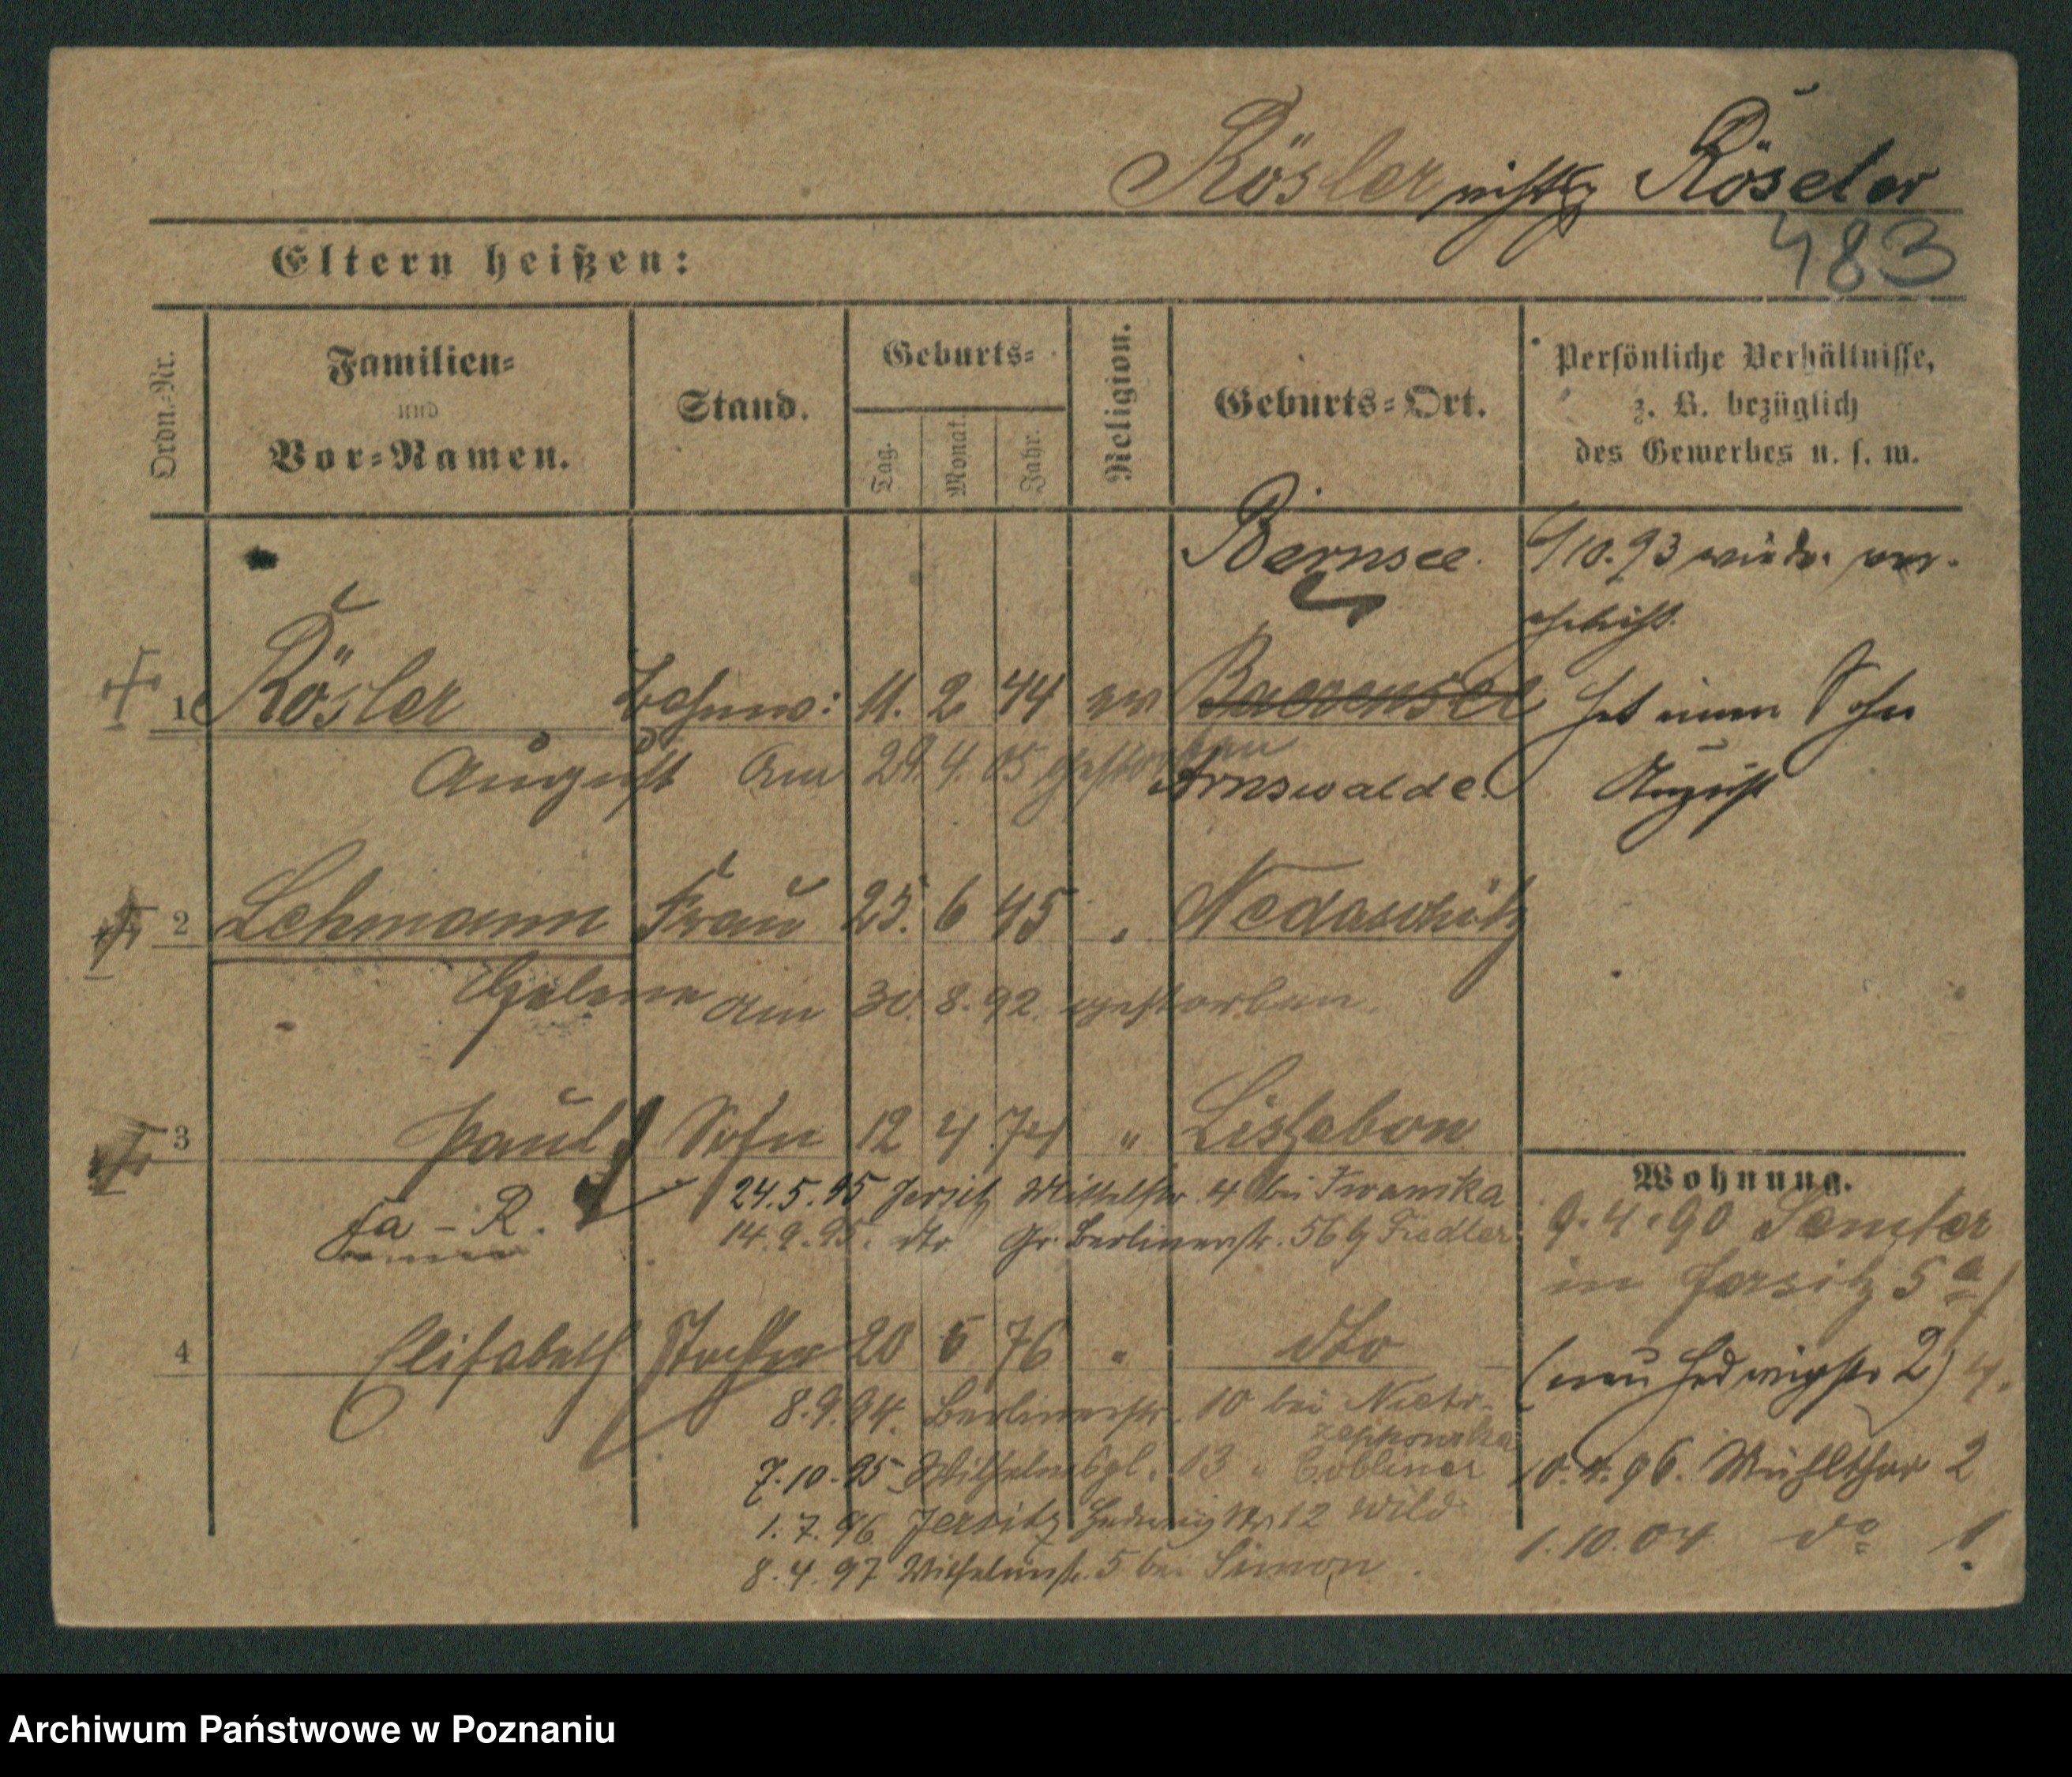 Rösler richtig Röseler
483
Eltern heißen:
Ordn.-Nr.
Familien-
und
Vor-Namen.
Stand.
Geburts-
Tag.
Monat.
Jahr.
Religion.
Geburts-Ort.
Persönliche Verhältnisse,
z. B. bezüglich
des Gewerbes u. s. w.
Bernsee.
/10.93 wieder ver-
ehelicht.
1 Rösler 11. 2 44 ev Baerensee hat einen Sohn
August am 29. 4. 05 gestorben Arnswalde. August
2 Lehmann Frau 25. 6 45 " Nedaschütz
Helene am 30. 8. 92. gestorben.
3 Paul Sohn 12 4 74 " Lissabon
Wohnung.
24.5.95 Jersitz Mittelstr. 4 bei Iwanska
fa - R.
14.9.95. dto Gr. Berlinerstr. 56 b/ Fiedler
9.4.90
in Jersitz 5a
4 Elisabeth Tochter 20 5 76 " dto
(neu Hedwigstr 2) 4.
8.9.94. Berlinerstr. 10 bei Nietr-
zepkowska
7.10.95 Wilhelmspl. 13 " Cobliner
10.4.96. Mühlthor 2
1.7.96 Jersitz Hedwigstr. 12 Wild
1.10.04 do 1.
8.4.97 Wilhelmstr. 5 bei Simon.
Archiwum Państwowe w Poznaniu